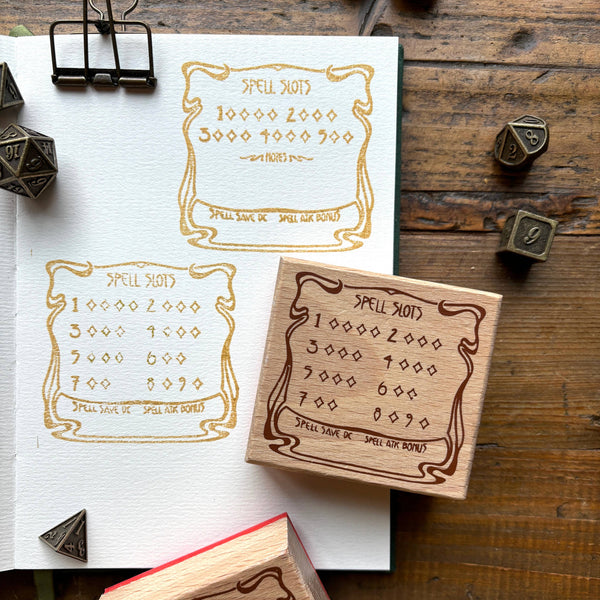 SPELL SLOTS
1◇◇◇◇ 2◇◇◇
3◇◇◇ 4◇◇◇ 5◇◇
NOTES
SPELL SAVE DC SPELL ATK BONUS
SPELL SLOTS
1 ◇◇◇◇ 2 ◇◇◇
3 ◇◇◇ 4 ◇◇◇
5 ◇◇◇ 6 ◇◇
7 ◇◇ 8 ◇ 9 ◇
SPELL SAVE DC SPELL ATK BONUS
SPELL SLOTS
1 ◇◇◇◇ 2 ◇◇◇
3 ◇◇◇ 4 ◇◇◇
5 ◇◇◇ 6 ◇◇
7 ◇◇ 8 ◇ 9 ◇
SPELL SAVE DC SPELL ATK BONUS
2
9